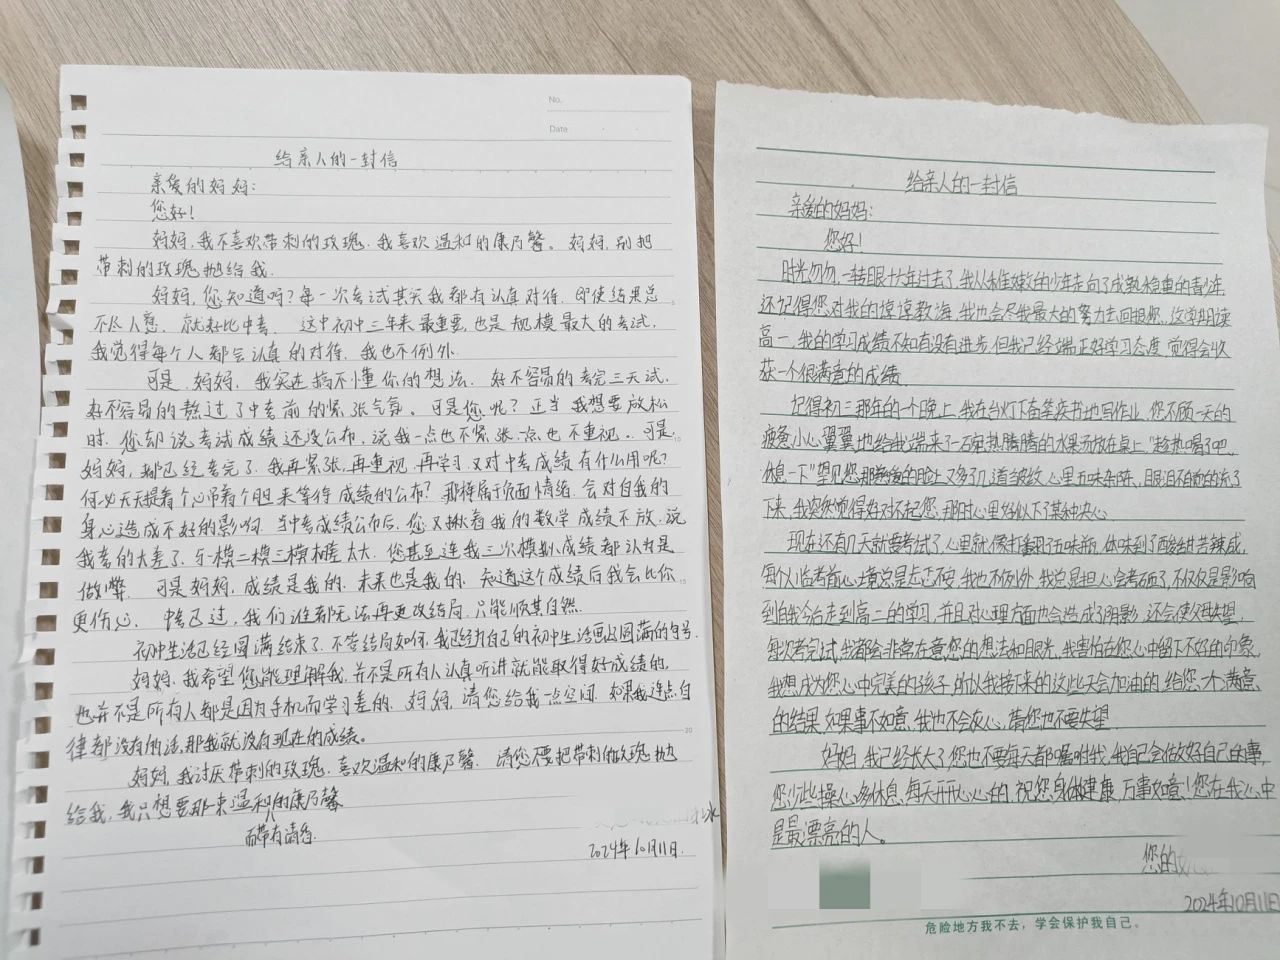 No.
Date
给亲人的一封信
亲爱的妈妈:
您好!
妈妈,我不喜欢带刺的玫瑰,我喜欢温和的康乃馨。妈妈,别把
带刺的玫瑰抛给我.
妈妈,您知道吗?每一次考试其实我都有认真对待,即使结果总
不尽人意,就好比中考,这中初中三年来最重要,也是规模最大的考试.
我觉得每个人都会认真的对待,我也不例外.
可是,妈妈,我实在搞不懂你的想法.好不容易的考完三天试,
好不容易的熬过了中考前的紧张气氛。可是您呢?正当我想要放松
时,您却说考试成绩还没公布,说我一点也不紧张一点也不重视。可是
妈妈,都已经考完了,我再紧张,再重视,再学习又对中考成绩有什么用呢?
何必天天提着个心吊着个胆来等待成绩的公布?那样属于负面情绪,会对自我的
身心造成不好的影响.当中考成绩公布后,您又揪着我的数学成绩不放,说
我考的太差了,与一模二模三模相差太大,您甚至连我三次模拟成绩都认为是
做弊.可是妈妈,成绩是我的,未来也是我的,知道这个成绩后我会比你
更伤心.中考已过,我们谁都无法再更改结局,只能顺其自然.
初中生活已经圆满结束了,不管结局如何,我已经为自己的初中生活画上圆满的句号.
妈妈,我希望您能理解我,并不是所有人认真听讲就能取得好成绩的,
也并不是所有人都是因为手机而学习差的.妈妈,请您给我一点空间,如果我连点自
律都没有的话,那我就没有现在的成绩。
妈妈,我讨厌带刺的玫瑰,喜欢温和的康乃馨.请您不要把带刺的玫瑰抛
给我,我只想要那一束温和的康乃馨
而带有清香.
2024年10月11日.
给亲人的一封信
亲爱的妈妈:
您好!
时光匆匆,一转眼十六年过去了,我从稚嫩的少年走向了成熟稳重的青少年.
还记得您对我的谆谆教诲,我也会尽我最大的努力去回报您.这学期读
高一,我的学习成绩不知有没有进步,但我已经端正好学习态度,觉得会收
获一个很满意的成绩.
记得初三那年的一个晚上,我在台灯下奋笔疾书地写作业,您不顾一天的
疲惫,小心翼翼地给我端来了一碗热腾腾的水果汤放在桌上,"趁热喝了吧,
休息一下"望见您那疲惫的脸上又多了几道皱纹,心里五味杂陈,眼泪不自觉的流了
下来,我突然觉得好对不起您,那时心里给似下了某种决心.
现在还有几天就要考试了,心里就像打翻了五味瓶,体味到了酸甜苦辣咸,
每个人临考前心境总是忐忑不安,我也不例外,我总是担心会考砸了,不仅仅是影响
到自我今后走到高二的学习,并且对心理方面也会造成了阴影,还会使父母失望,
每次考完试,我都会非常在意您的想法和眼光,我害怕在您心中留下不好的印象,
我想成为您心中完美的孩子,所以我接下来的这些天会加油的,给您一个满意
的结果,如果事不如意,我也不会灰心,请您也不要失望.
妈妈,我已经长大了,您也不要每天都嘱咐我,我自己会做好自己的事,
您少些操心,多休息,每天开开心心的,祝您身体健康,万事如意!您在我心中
是最漂亮的人。
您的
2024年10月11日
危险地方我不去,学会保护我自己。